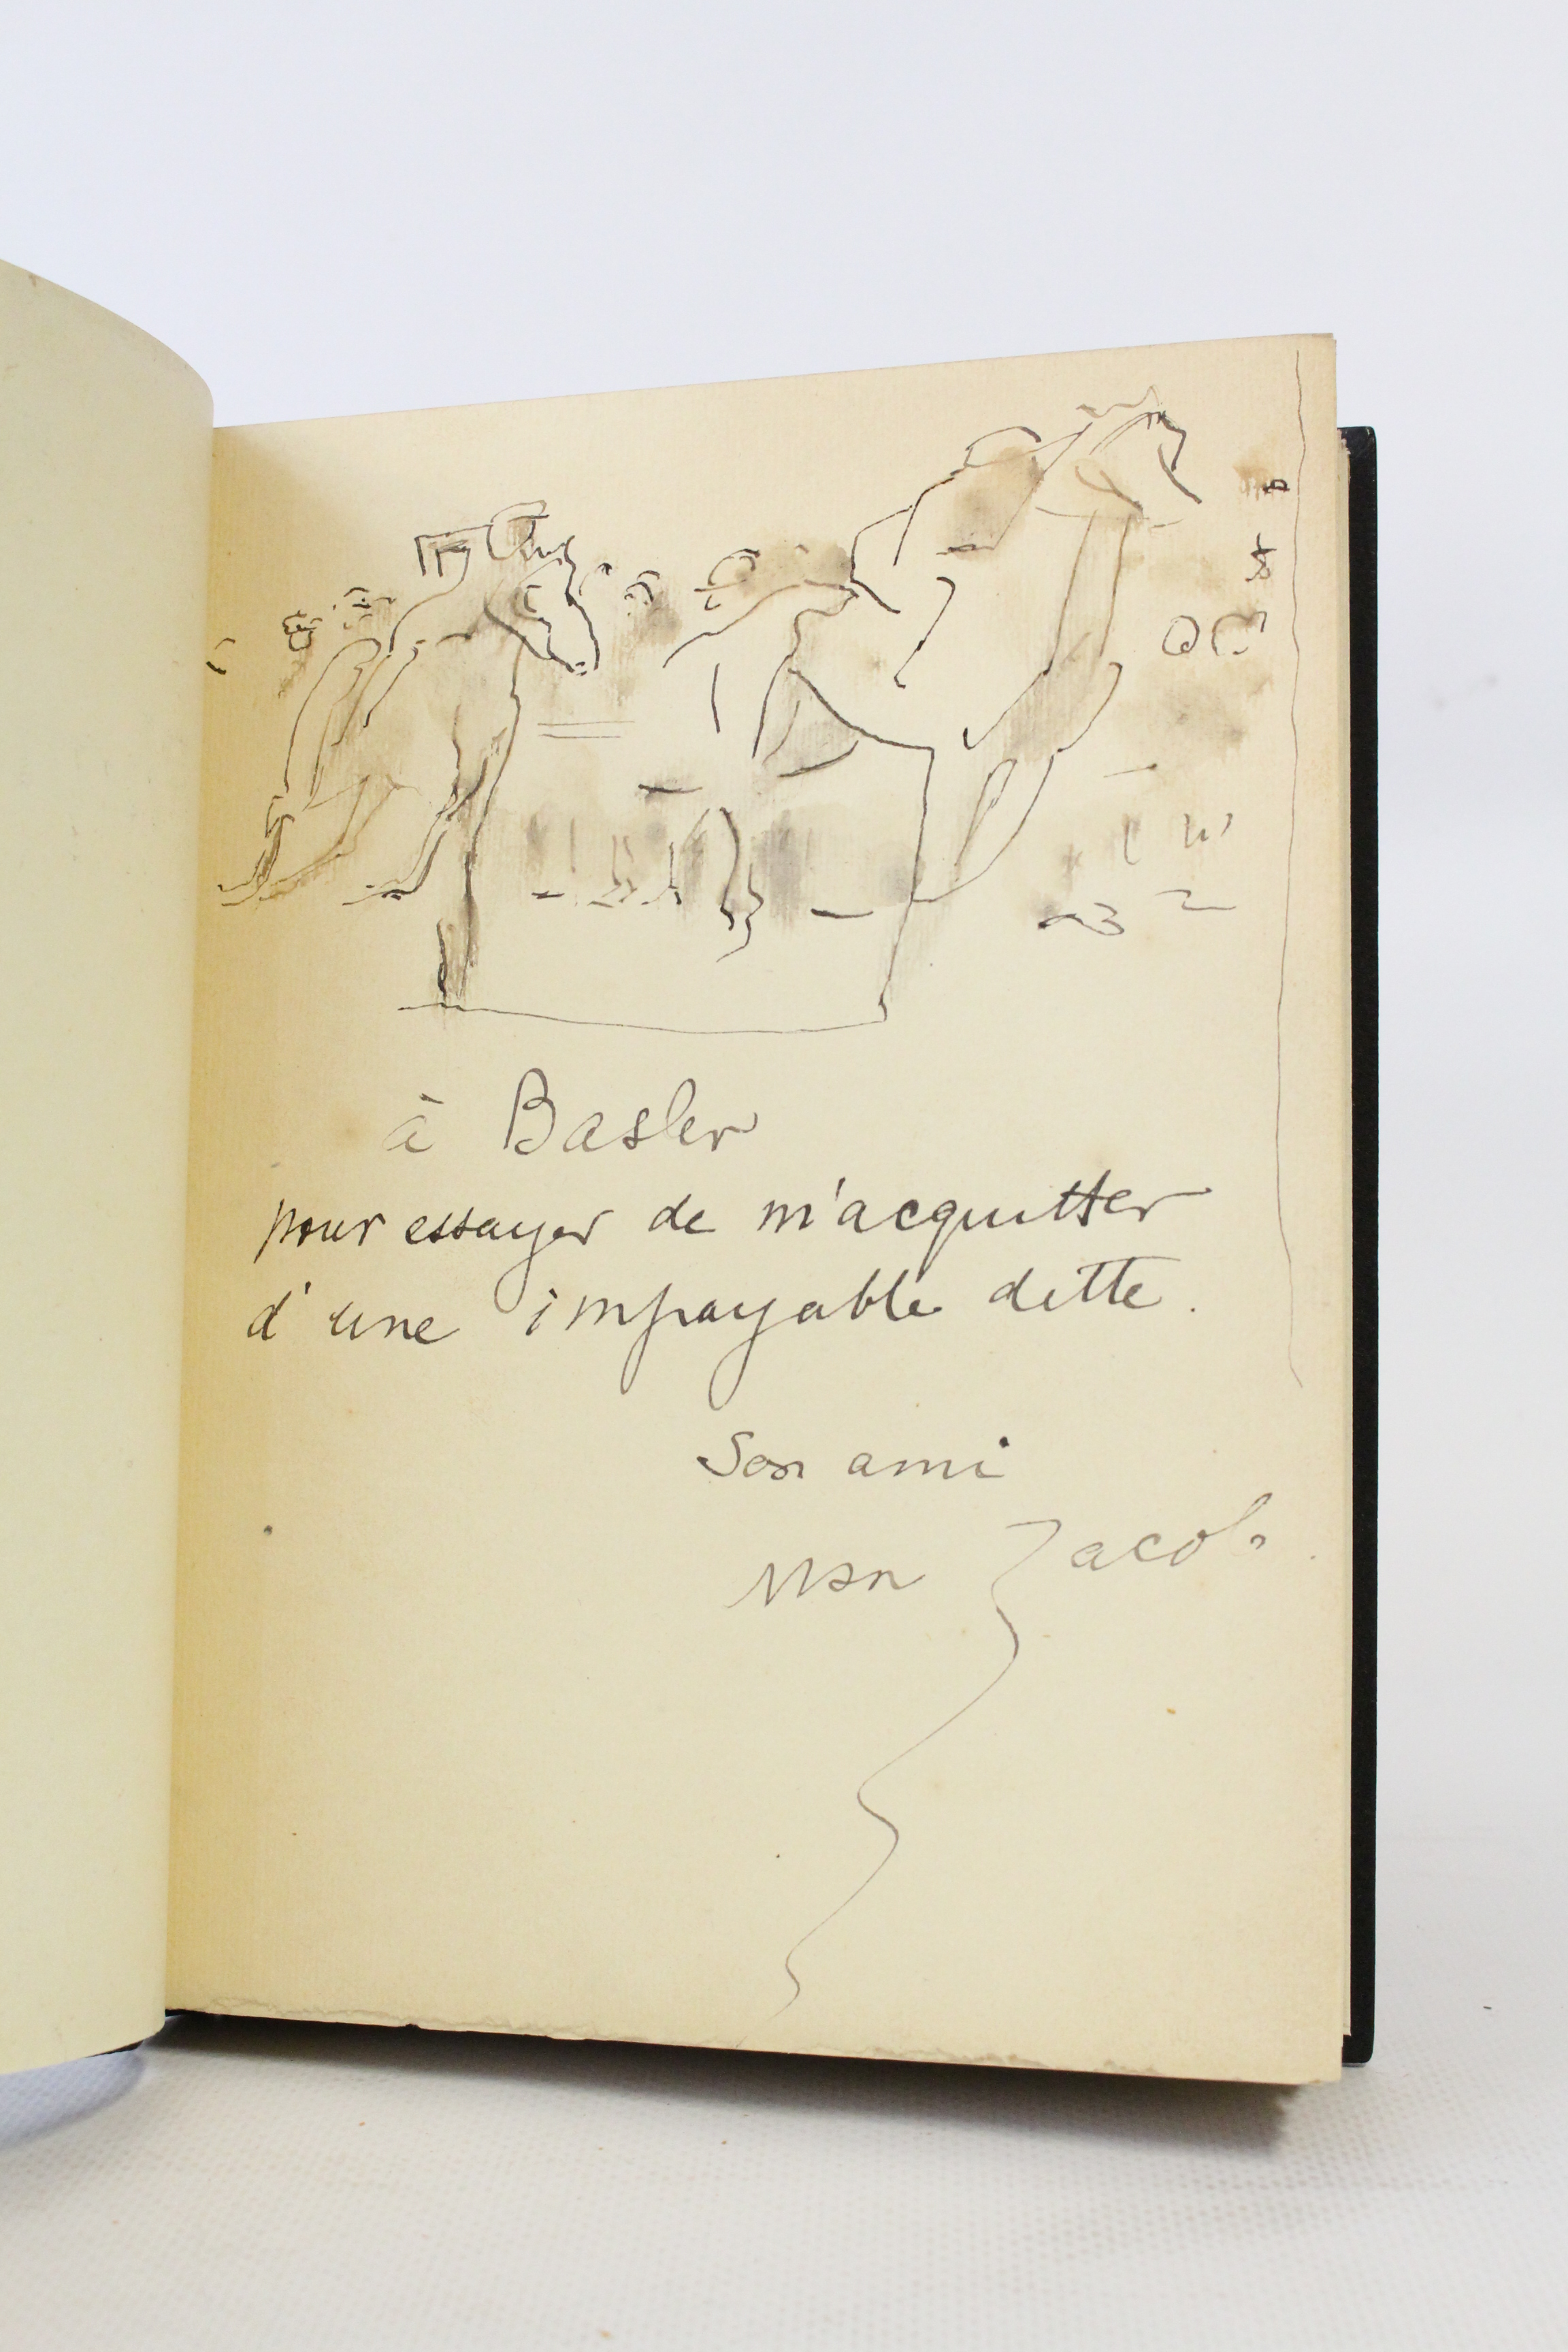 à Basler
pour essayer de m'acquitter
d'une impayable dette.
Son ami
Max Jacob